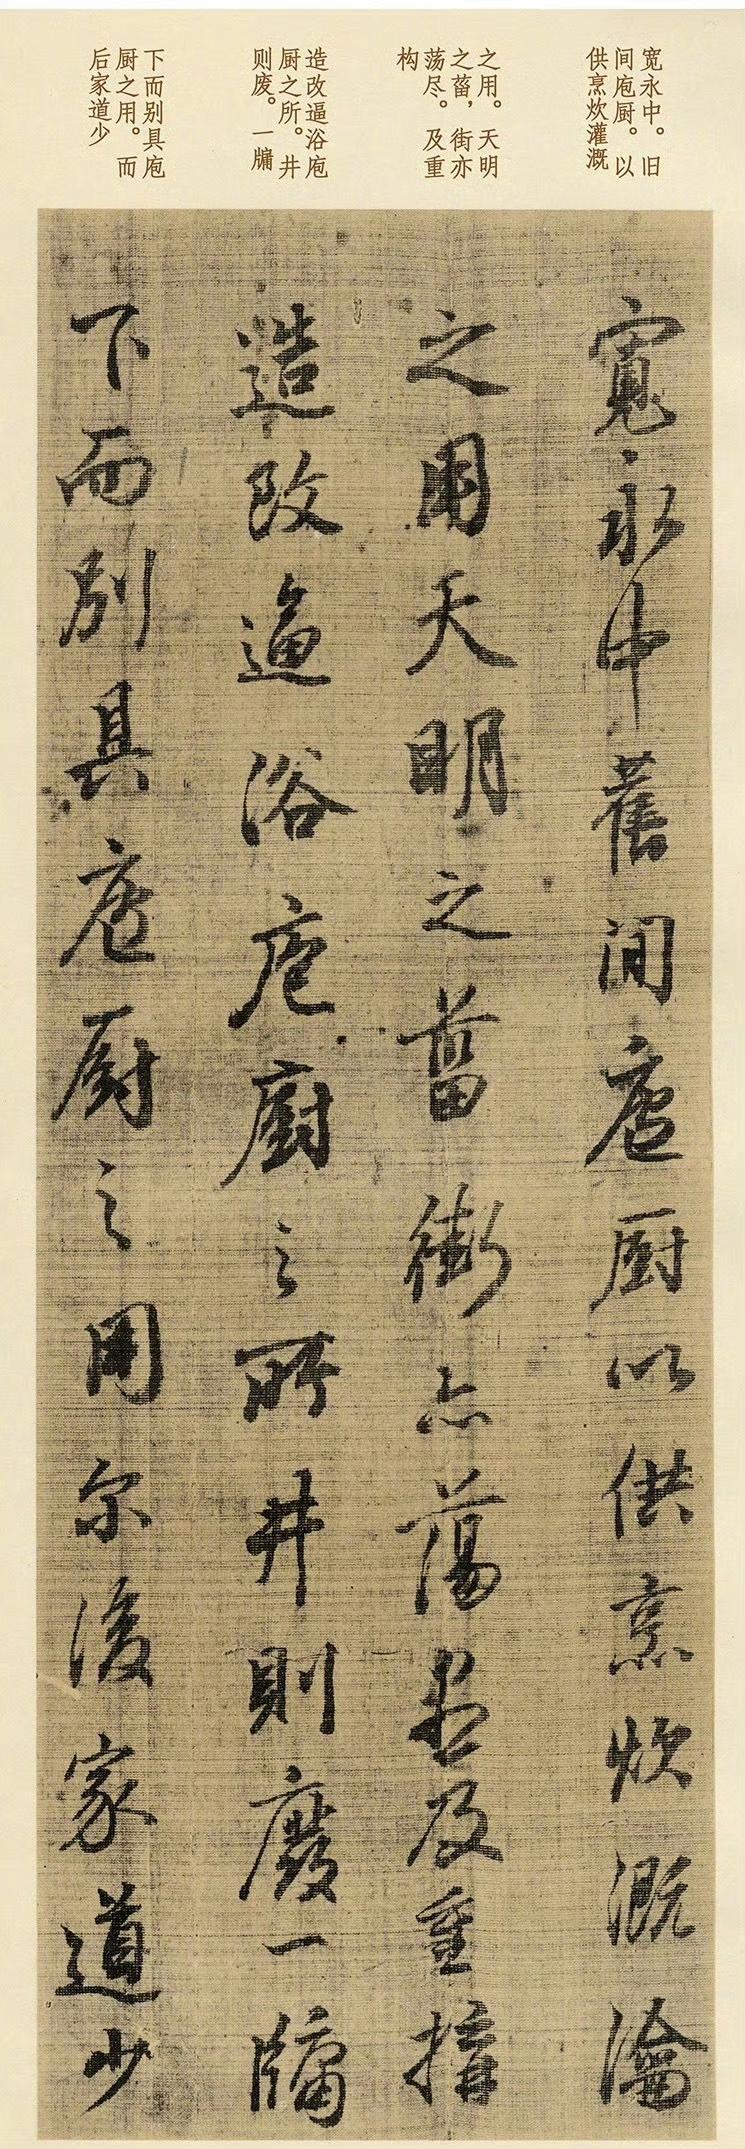 宽永中。旧
间庖厨。以
供烹炊灌溉
之用。天明
之菑,街亦
荡尽。及重
构
造改逼浴庖
厨之所。井
则废。一牗
下而别具庖
厨之用。而
后家道少
寬永中舊間庖厨以供烹炊溉瀹
之用天明之菑街亦蕩尽及重搆
造改逼浴庖廚之所井則廢一牗
下而別具庖厨之用尔後家道少